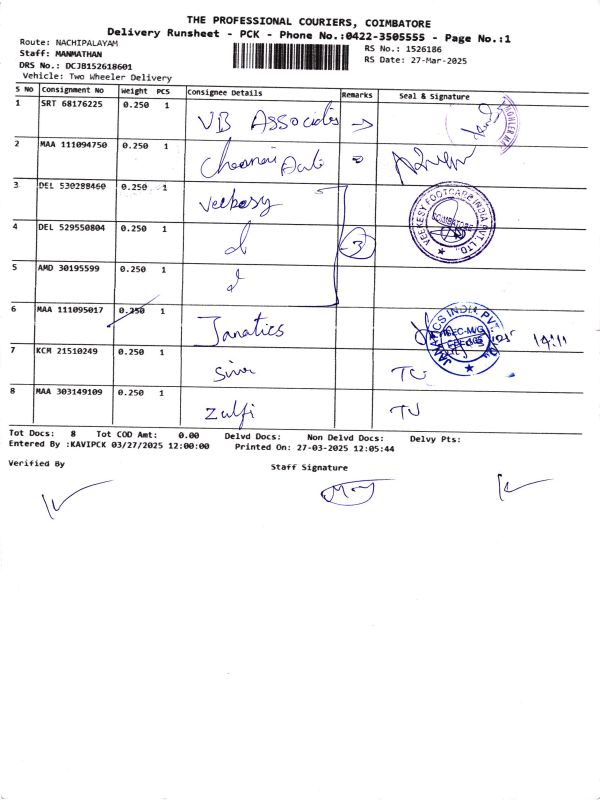 THE PROFESSIONAL COURIERS, COIMBATORE
Delivery Runsheet - PCK - Phone No.:0422-3505555 - Page No.:1
Route: NACHIPALAYAM
RS No.: 1526186
Staff: MANMATHAN
RS Date: 27-Mar-2025
DRS No.: DCJB152618601
Vehicle: Two Wheeler Delivery
S No Consignment No Weight PCS Consignee Details Remarks Seal & Signature
1 SRT 68176225 0.250 1 VB Associates
2 MAA 111094750 0.250 1
3 DEL 530288460 0.250 1 Veekesy
VEEKESY FOOTCARE INDIA PVT. LTD. COIMBATORE
4 DEL 529550804 0.250 1 3
5 AMD 30195599 0.250 1
6 MAA 111095017 0.250 1 Janatics
JANATICS INDIA PVT
7 KCM 21510249 0.250 1
8 MAA 303149109 0.250 1 Zulfi
Tot Docs: 8 Tot COD Amt: 0.00 Delvd Docs: Non Delvd Docs: Delvy Pts:
Entered By :KAVIPCK 03/27/2025 12:00:00 Printed On: 27-03-2025 12:05:44
Verified By
Staff Signature